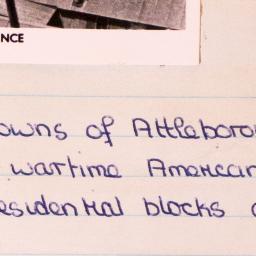 NCE
owns of Attleboro
wartime American
esidential blocks